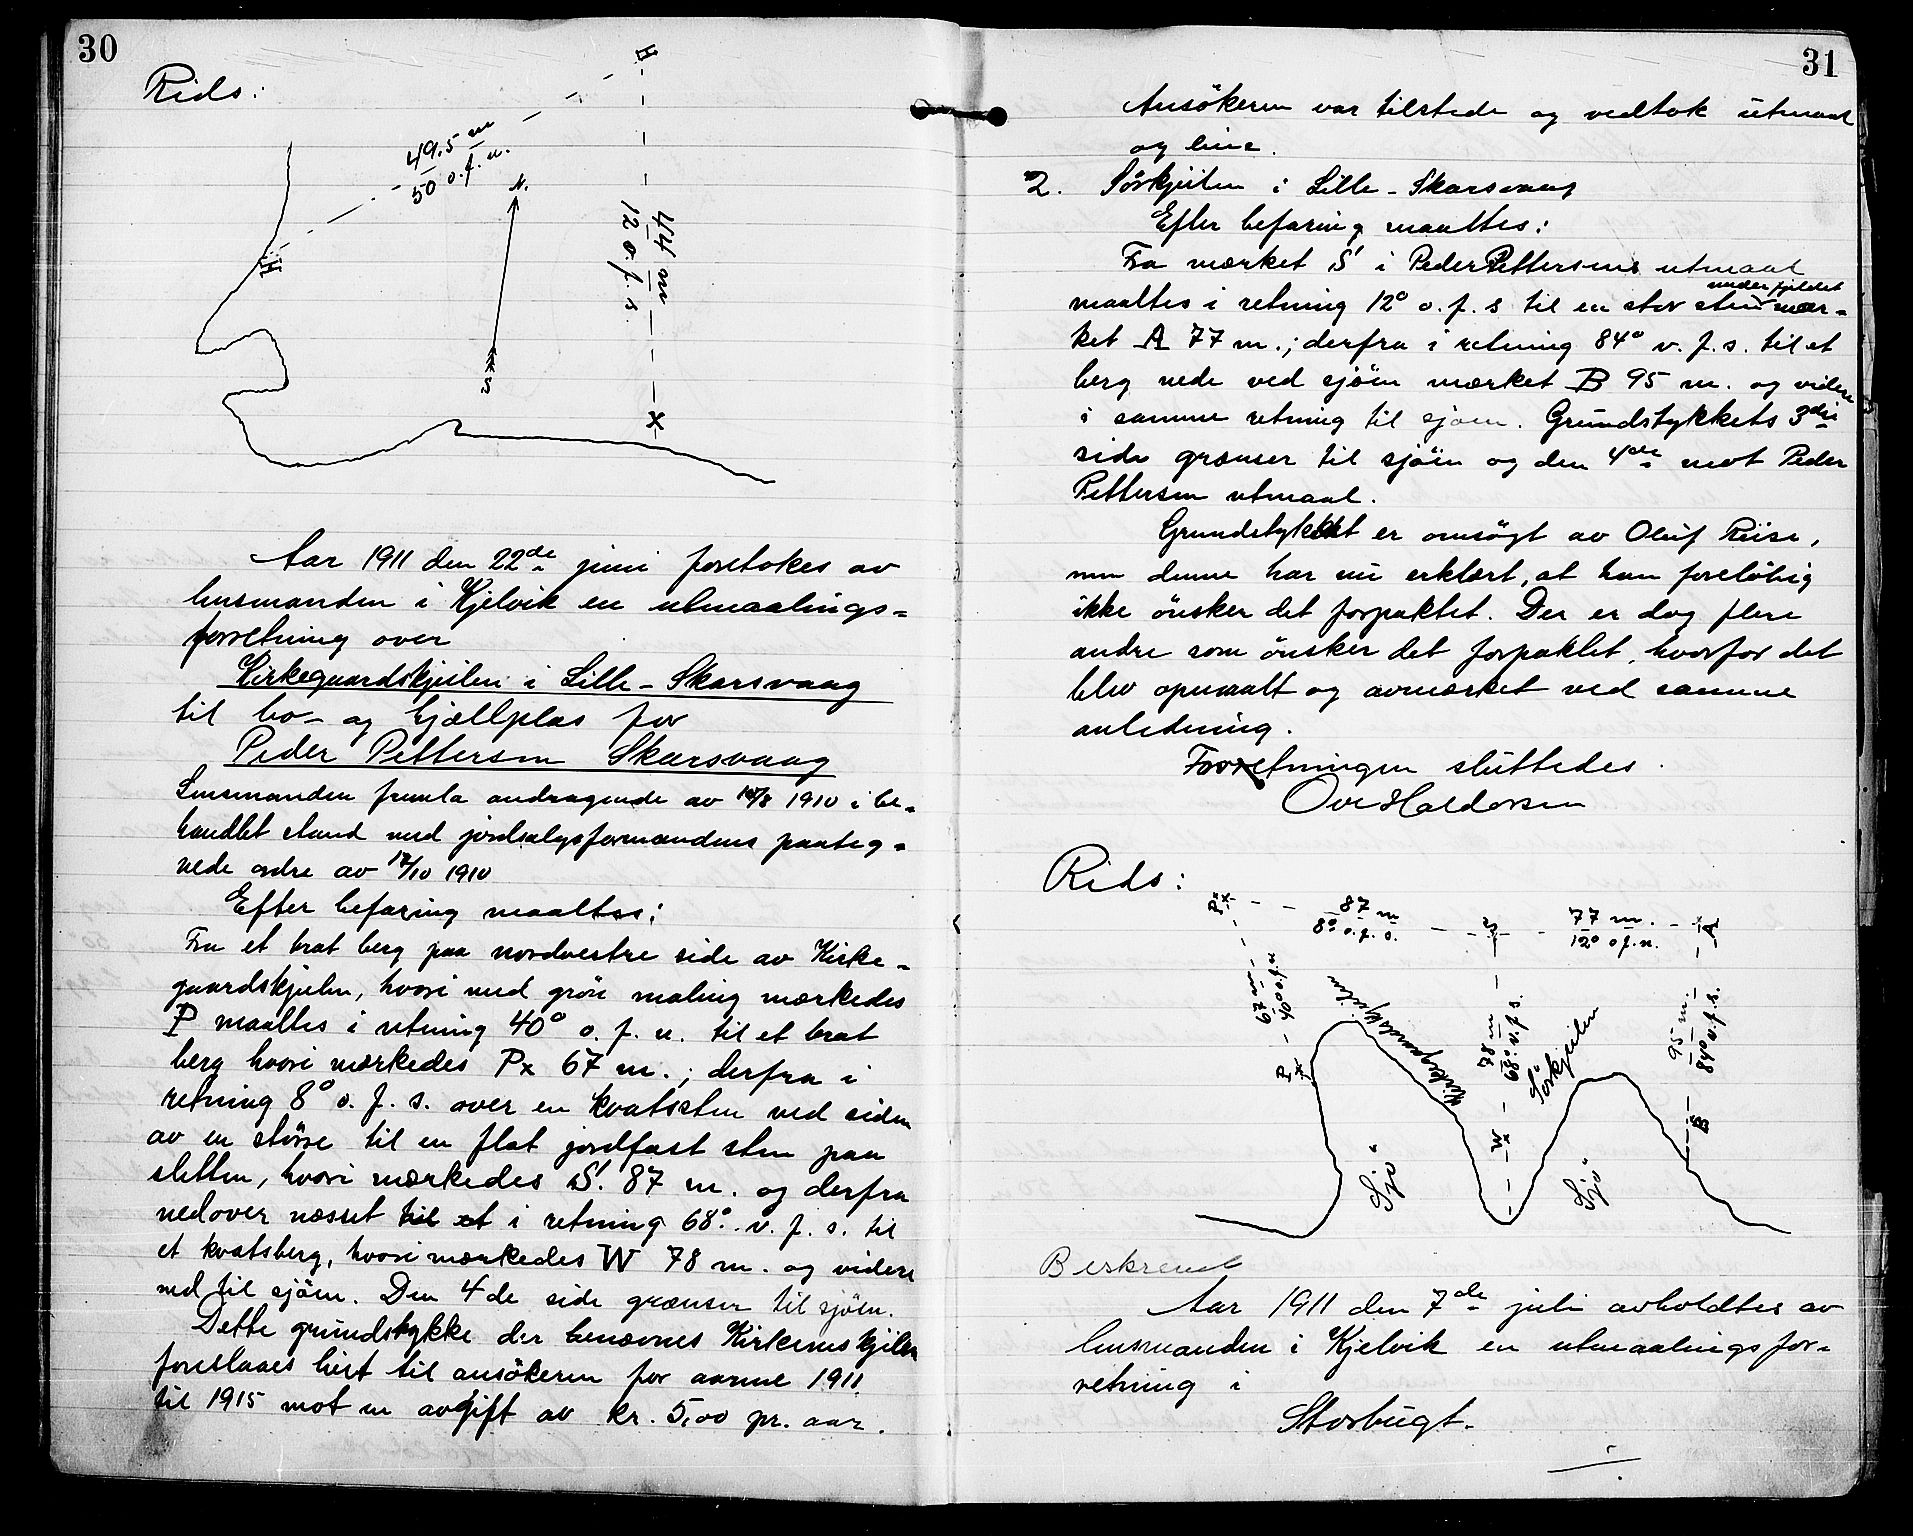 30
Rids:
H
49.5 m
50 o.f.n.
N.
44 m
12 o.f.s.
H
S
X
Aar 1911 den 22de juni foretokes av
lensmanden i Kjelvik en utmaalings-
forretning over
Kirkegaardskjeilen i Lille-Skarsvaag
til bo- og hjællplas for
Peder Pettersen Skarsvaag
Lensmanden fremla andragende av 18/8 1910 i be-
handlet stand med jordsalgsformandens paateg-
nede ordre av 17/10 1910
Efter befaring maaltes:
Fra et brat berg paa nordvestre side av Kirke-
gaardskjeilen, hvori med grön maling mærkedes
P maaltes i retning 40° o. f. n. til et brat
berg hvori mærkedes Px 67 m.; derfra i
retning 8° o. f. s. over en kvatsten ved siden
av en större til en flat jordfast sten paa
sletten, hvori mærkedes S. 87 m. og derfra
nedover næsset til et i retning 68° v. f. s. til
et kvatsberg, hvori mærkedes W 78 m. og videre
ned til sjöen. Den 4de side grænser til sjöen.
Dette grundstykke der benævnes Kirkeneskjeilen
foreslaaes leiet til ansökeren for aarene 1911
til 1915 mot en avgift av kr. 5,00 pr. aar.
31
Ansökeren var tilstede og vedtok utmaal
og leie.
2. Sörkjeilen i Lille-Skarsvaag
Efter befaring maaltes:
Fra mærket S i Peder Pettersens utmaal
under fjeldet
maaltes i retning 12° o. f. s til en stor sten mær-
ket A 77 m.; derfra i retning 84° v. f. s. til et
berg nede ved sjöen mærket B 95 m. og videre
i samme retning til sjöen. Grundstykkets 3die
side grænser til sjöen og den 4de mot Peder
Pettersen utmaal.
Grundstykket er omsögt av Oluf Riise,
men denne har nu erklært, at han forelöbig
ikke önsker det forpaktet. Der er dog flere
andre som önsker det forpaktet, hvorfor det
blev opmaalt og avmærket ved samme
anledning.
Forretningen sluttedes.
Ove Haldorsen
Rids:
Px
87 m
8° o.f.s.
S
77 m.
12° o f.n.
A
67 m
40° o.f.n
Kirkegaardskjeilen
78 m
68° v.f.s.
Sörkjeilen
95 m.
84° v.f.s.
P
W
B
Sjö
Sjö
Beskrevet
Aar 1911 den 7de juli avholdtes av
lensmanden i Kjelvik en utmaalingsfor-
retning i
Storbugt.